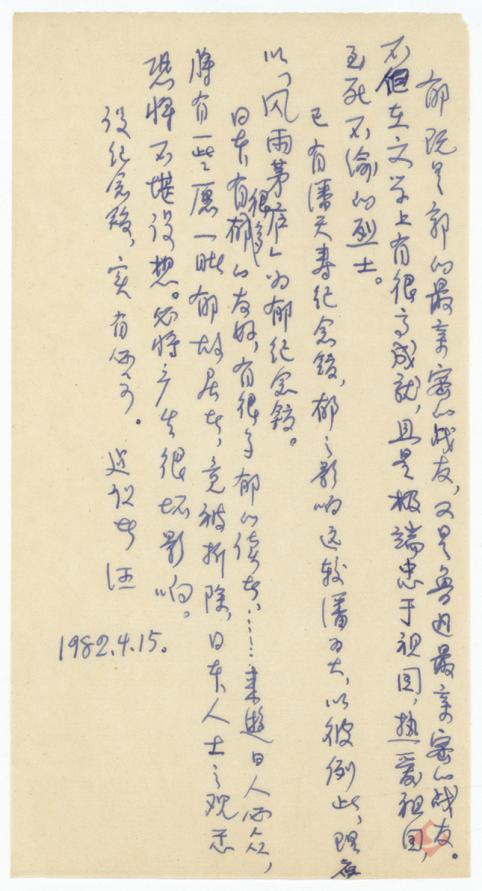 郁既是郭的最亲密的战友,又是鲁迅最亲密的战友。
不但在文学上有很高成就,且是极端忠于祖国,热爱祖国,
至死不渝的烈士。
已有潘天寿纪念馆,郁之影响远较潘为大,以彼例此,理应
以“风雨茅庐”为郁纪念馆。
日本有很多郁的友好,有很多郁的读者,……来游日人众,
将有一些愿一睹郁故居者,竟被拆除,日本人士之观感
恐将不堪设想。必将产生很坏影响。
设纪念馆,实有。 建议者 汪
1982.4.15。